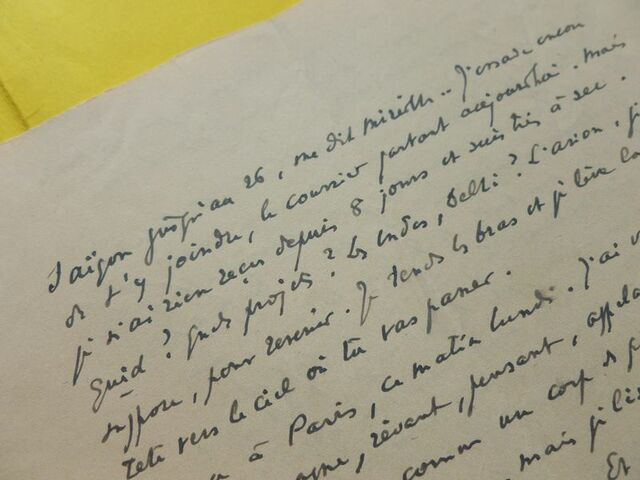 Saïgon jusqu'au 26, me dit Mireille.. J'essaie encore
de t'y joindre, le courrier partant aujourd'hui. Mais
je n'ai rien reçu depuis 8 jours et suis très à sec.
Quid? Quels projets? Les Indes, Delhi? L'avion, je
suppose, pour revenir. Je tends les bras et je lève la
tête vers le ciel où tu vas passer.
à Paris, ce matin lundi. J'ai
rêvant, pensant,
comme un corps
mais je
Et